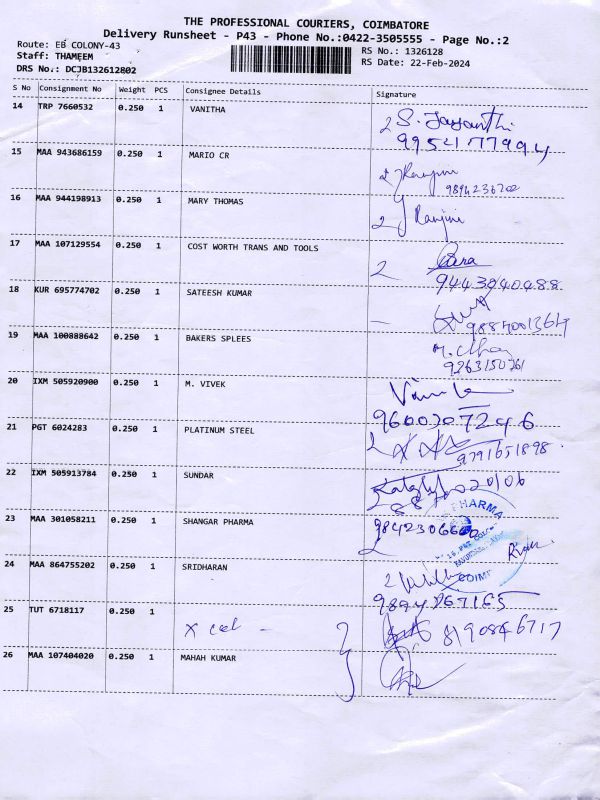 THE PROFESSIONAL COURIERS, COIMBATORE
Delivery Runsheet - P43 - Phone No.:0422-3505555 - Page No.:2
Route: EB COLONY-43
RS No.: 1326128
Staff: THAMEEM
RS Date: 22-Feb-2024
DRS No.: DCJB132612802
S No Consignment No Weight PCS Consignee Details Signature
14 TRP 7660532 0.250 1 VANITHA
S. Jayanthi
15 MAA 943686159 0.250 1 MARIO CR
9894236202
16 MAA 944198913 0.250 1 MARY THOMAS
Ranjini
17 MAA 107129554 0.250 1 COST WORTH TRANS AND TOOLS
9443940488
18 KUR 695774702 0.250 1 SATEESH KUMAR
19 MAA 100888642 0.250 1 BAKERS SPLEES
9263150761
20 IXM 505920900 0.250 1 M. VIVEK
9600207246
21 PGT 6024283 0.250 1 PLATINUM STEEL
9791651898
22 IXM 505913784 0.250 1 SUNDAR
PHARMA
23 MAA 301058211 0.250 1 SHANGAR PHARMA
24 MAA 864755202 0.250 1 SRIDHARAN
25 TUT 6718117 0.250 1
8190846717
26 MAA 107404020 0.250 1 MAHAH KUMAR